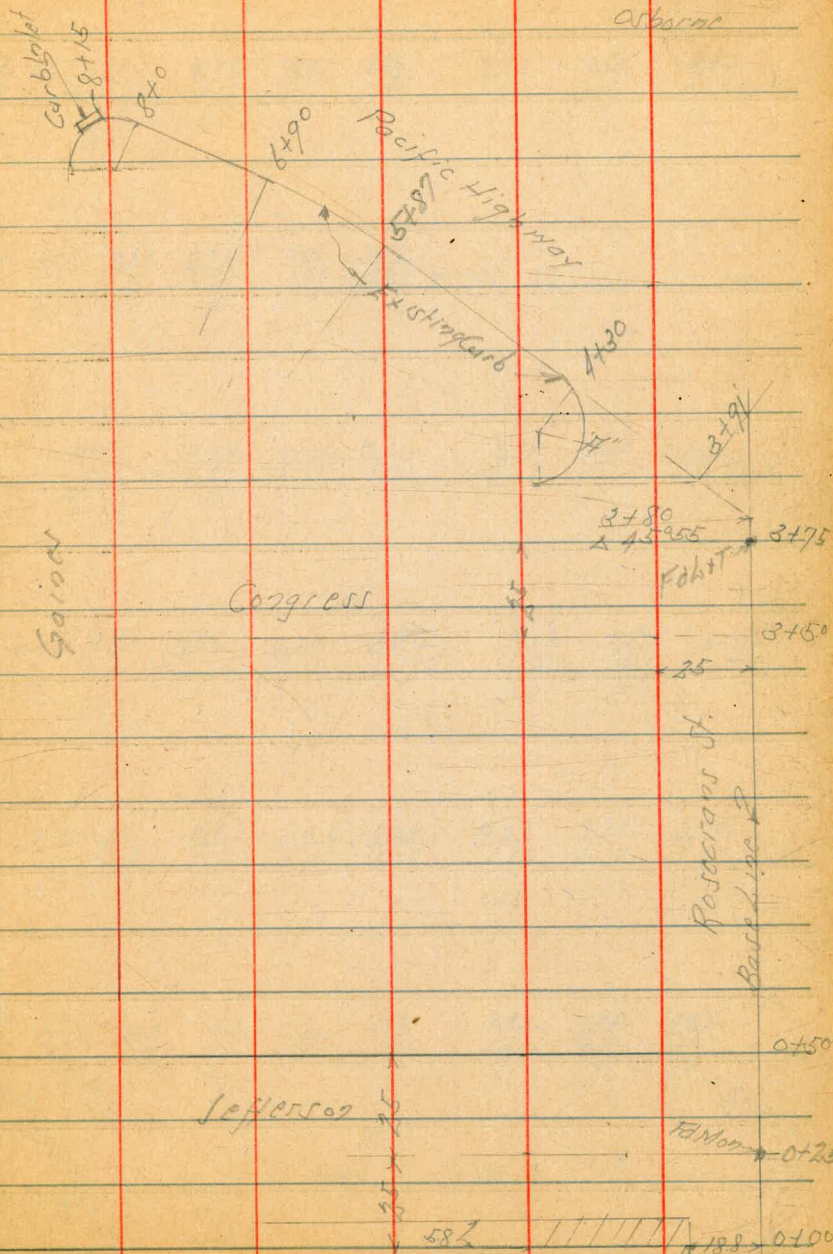 Osborne
Curb Inlet
8+15
8+0
6+90
Pacific Highway
5+87
Existing Curb
4+30
3+91
3+80
Δ 45°55
3+75
Fd L+T
Congress
Gaines
3+50
25
Rosecrans St.
Base Line
0+50
Jefferson
25
25
Fd Mon
0+25
58
188
0+00